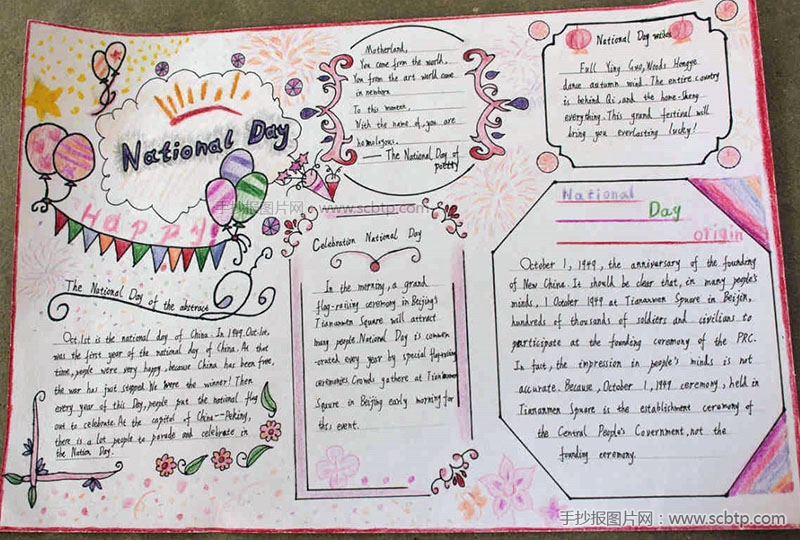 National Day
Happy!
The National Day of the abstract
Oct.1st is the national day of China. In 1949. Oct.1st,
was the first year of the national day of China. At that
time, people were very happy, because China has been free,
the war has just stopped. We were the winner! Then
every year of this Day, people put the national flag
out to celebrate. At the capital of China--Peking,
there is a lot people to parade and celebrate in
the Nation Day.
Motherland,
You come from the world,
You from the art world came
in newborn
To this moment,
With the name of, you are
homologous.
— The National Day of
poetry
National Day wishes
Full Ying Guo, Woods Hongye
dance autumn wind. The entire country
is behind Qi, and the home-Sheng
everything. This grand festival will
bring you everlasting lucky!
Celebration National Day
In the morning, a grand
flag-raising ceremony in Beijing's
Tiananmen Square will attract
many people. National Day is commem
-orated every year by special flag-raising
ceremonies. Crowds gathere at Tiananmen
Square in Beijing early morning for
this event.
National
Day
origin
October 1, 1949, the anniversary of the founding
of New China. It should be clear that, in many people's
minds, 1 October 1949 at Tiananmen Square in Beijin,
hundreds of thousands of soldiers and civilians to
participate at the founding ceremony of the PRC.
In fact, the impression in people's minds is not
accurate. Because, October 1, 1949 ceremony, held in
Tiananmen Square is the establishment ceremony of
the Central People's Government, not the
founding ceremony.
手抄报图片网：www.scbtp.com
手抄报图片网：www.scbtp.com